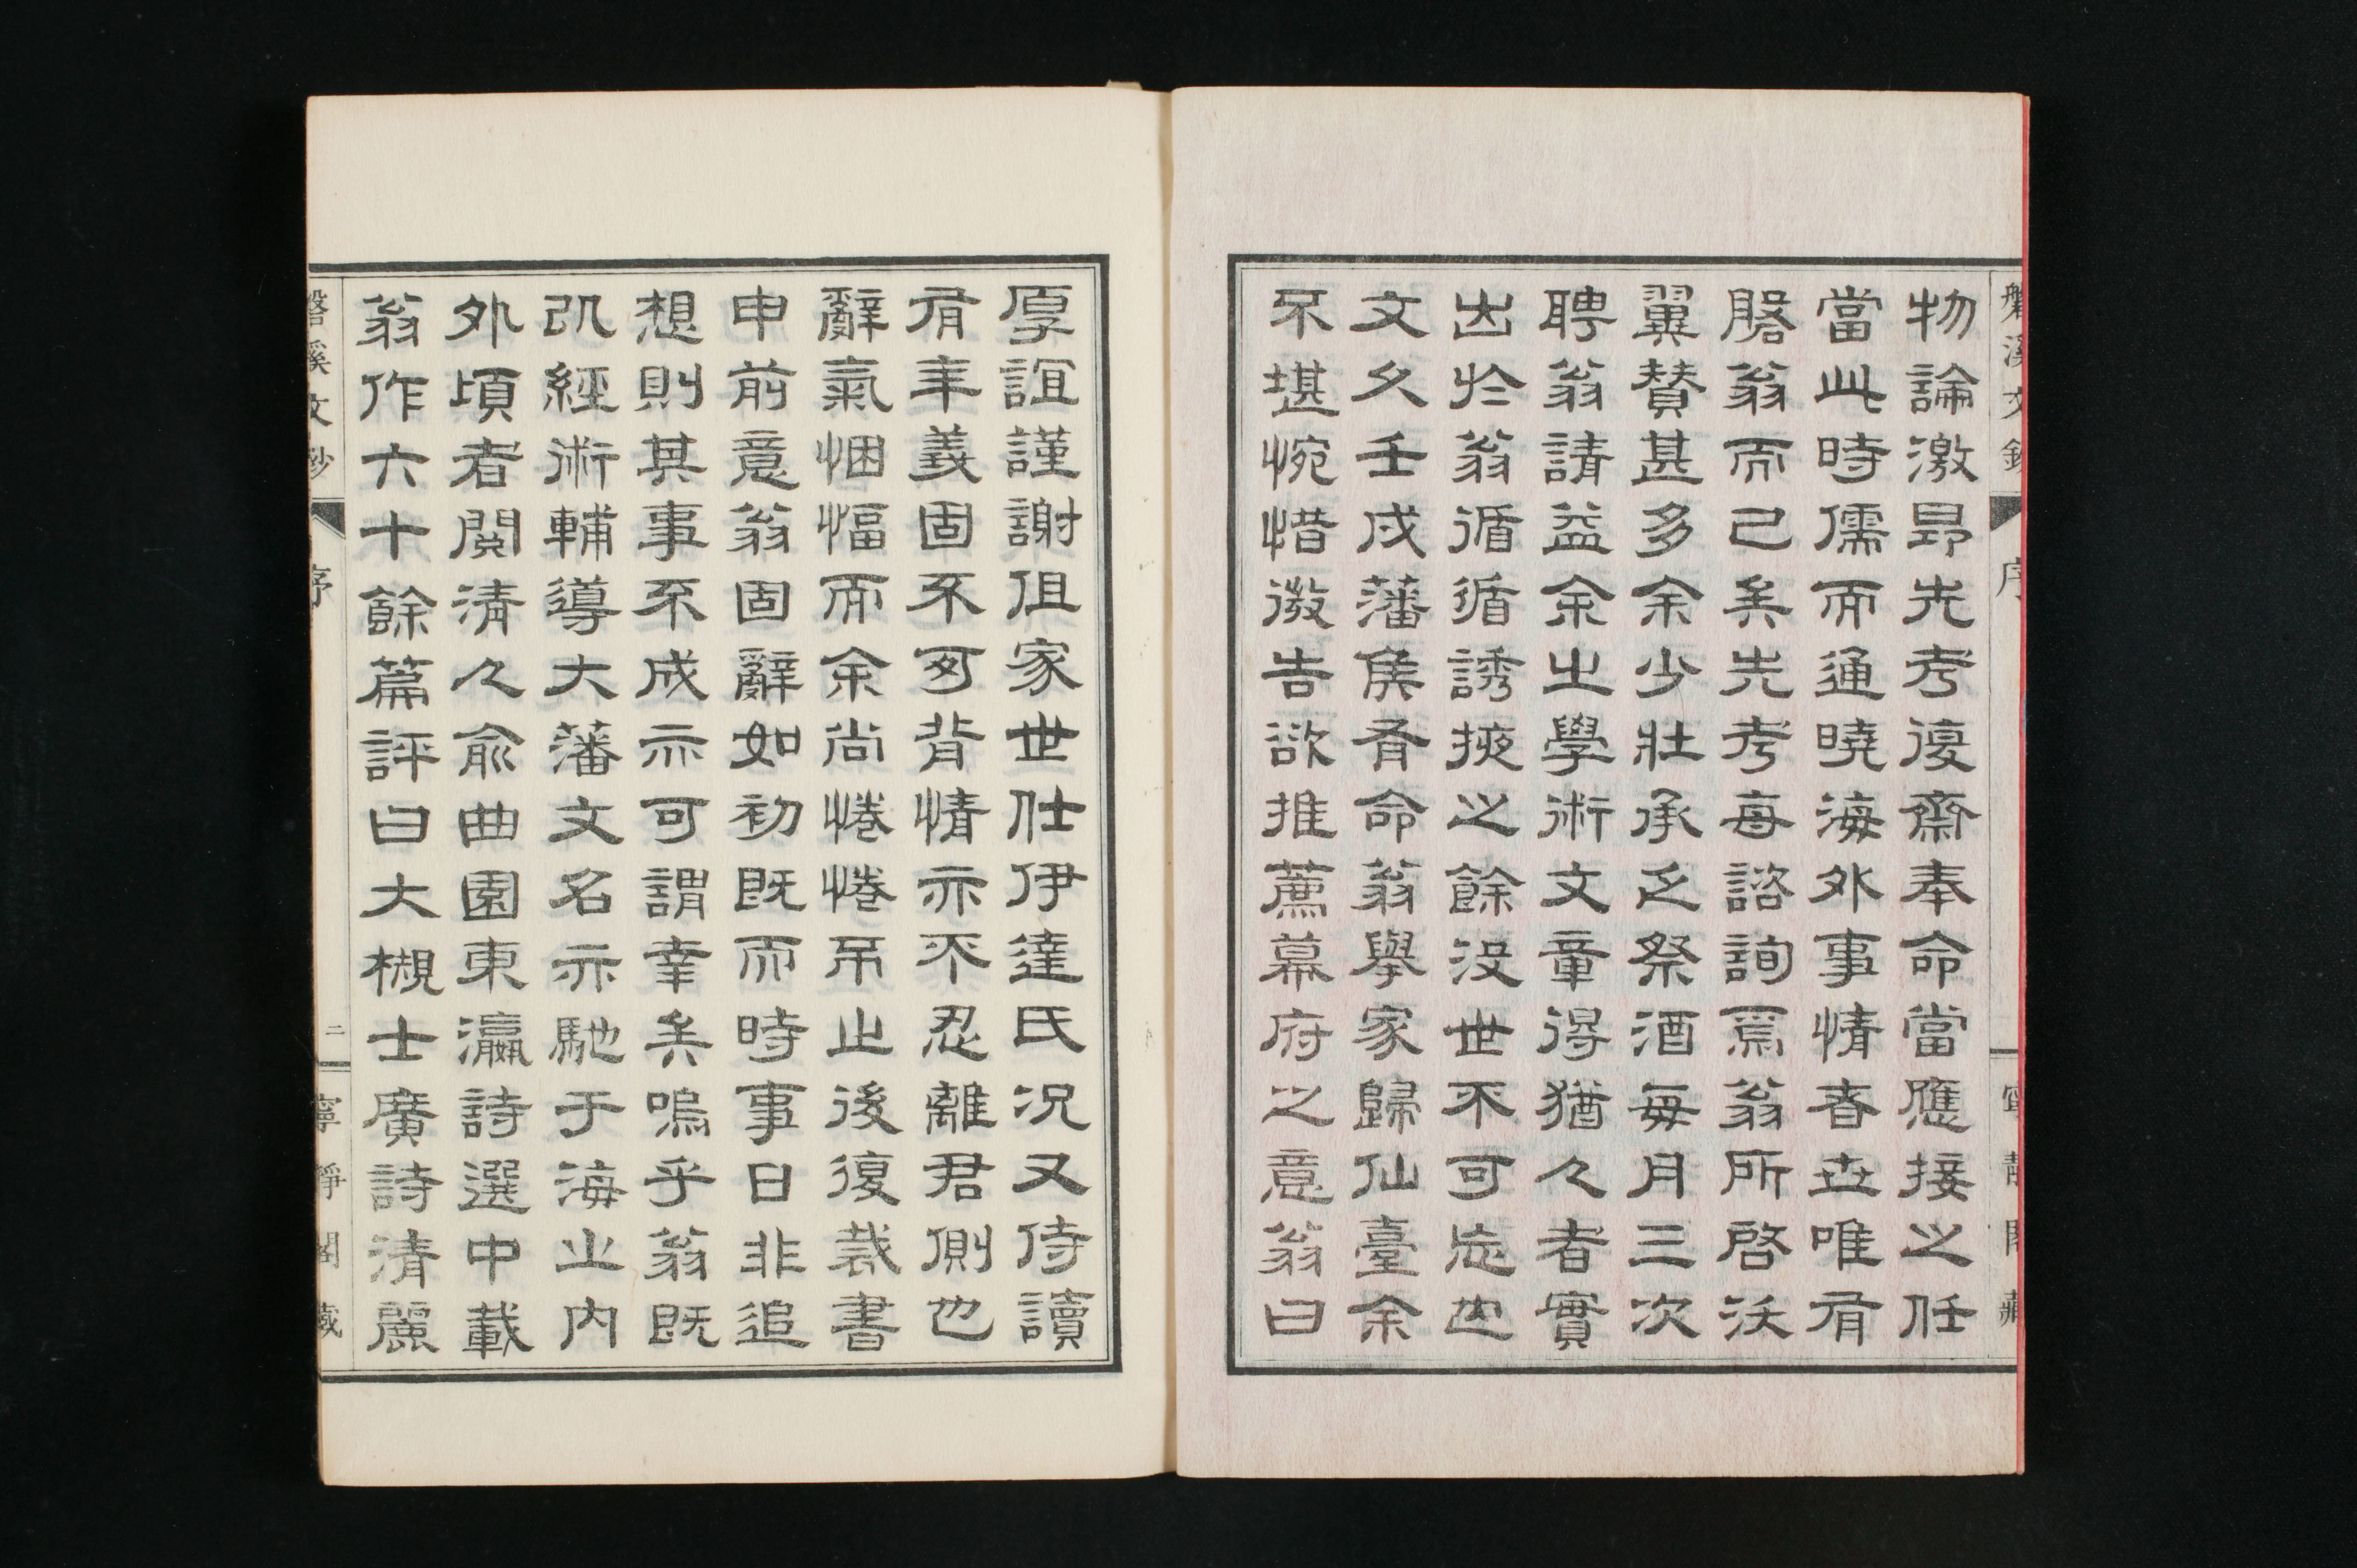 物論激昂先考復齋奉命當應接之任
當此時儒而通曉海外事情者世唯有
磐翁而已矣先考每諮詢焉翁所啓沃
翼贊甚多余少壯承乏祭酒每月三次
聘翁請益余之學術文章得猶々者實
出於翁循循誘掖之餘沒世不可忘也
文久壬戌藩侯有命翁擧家歸仙臺余
不堪惋惜微告欲推薦幕府之意翁曰
厚誼謹謝但家世仕伊達氏況又侍讀
有年義固不可背情亦不忍離君側也
辭氣悃愊而余尚惓惓不止後復裁書
申前意翁固辭如初既而時事日非追
想則其事不成亦可謂幸矣嗚乎翁既
以經術輔導大藩文名亦馳于海之內
外頃者閱清々俞曲園東瀛詩選中載
翁作六十餘篇評曰大槻士廣詩清麗
磐溪文鈔
序
二
寧靜閣藏